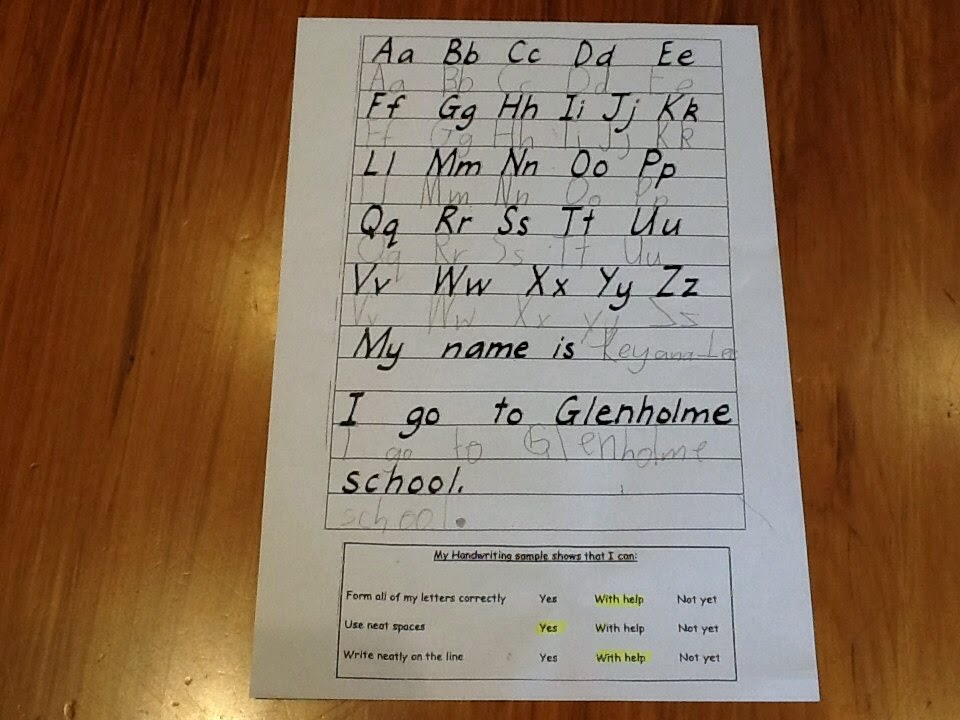 Aa Bb Cc Dd Ee
Aa Bb Cc Dd Ee
Ff Gg Hh Ii Jj Kk
Ff Gg Hh Ii Jj Kk
Ll Mm Nn Oo Pp
Ll Mm Nn Oo Pp
Qq Rr Ss Tt Uu
Qq Rr Ss Tt Uu
Vv Ww Xx Yy Zz
Vv Ww Xx Yy Ss
My name is Keyana-Lee
I go to Glenholme
I go to Glenholme
school.
school.
My Handwriting sample shows that I can:
Form all of my letters correctly Yes With help Not yet
Use neat spaces Yes With help Not yet
Write neatly on the line Yes With help Not yet